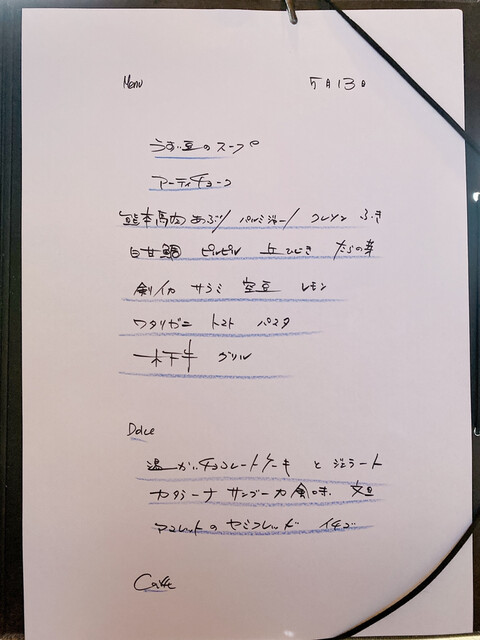 Menu 5月13日
うすい豆のスープ
アーティチョーク
熊本馬肉あぶり パルミジャーノ クレソン ふき
白甘鯛 ピルピル 丘ひじき たらの芽
剣イカ サラミ 空豆 レモン
ワタリガニ トマト パスタ
木下牛 グリル
Dolce
温かいチョコレートケーキ と ジェラート
カタラーナ サンブーカ風味 文旦
のセミフレッド イチゴ
Caffe